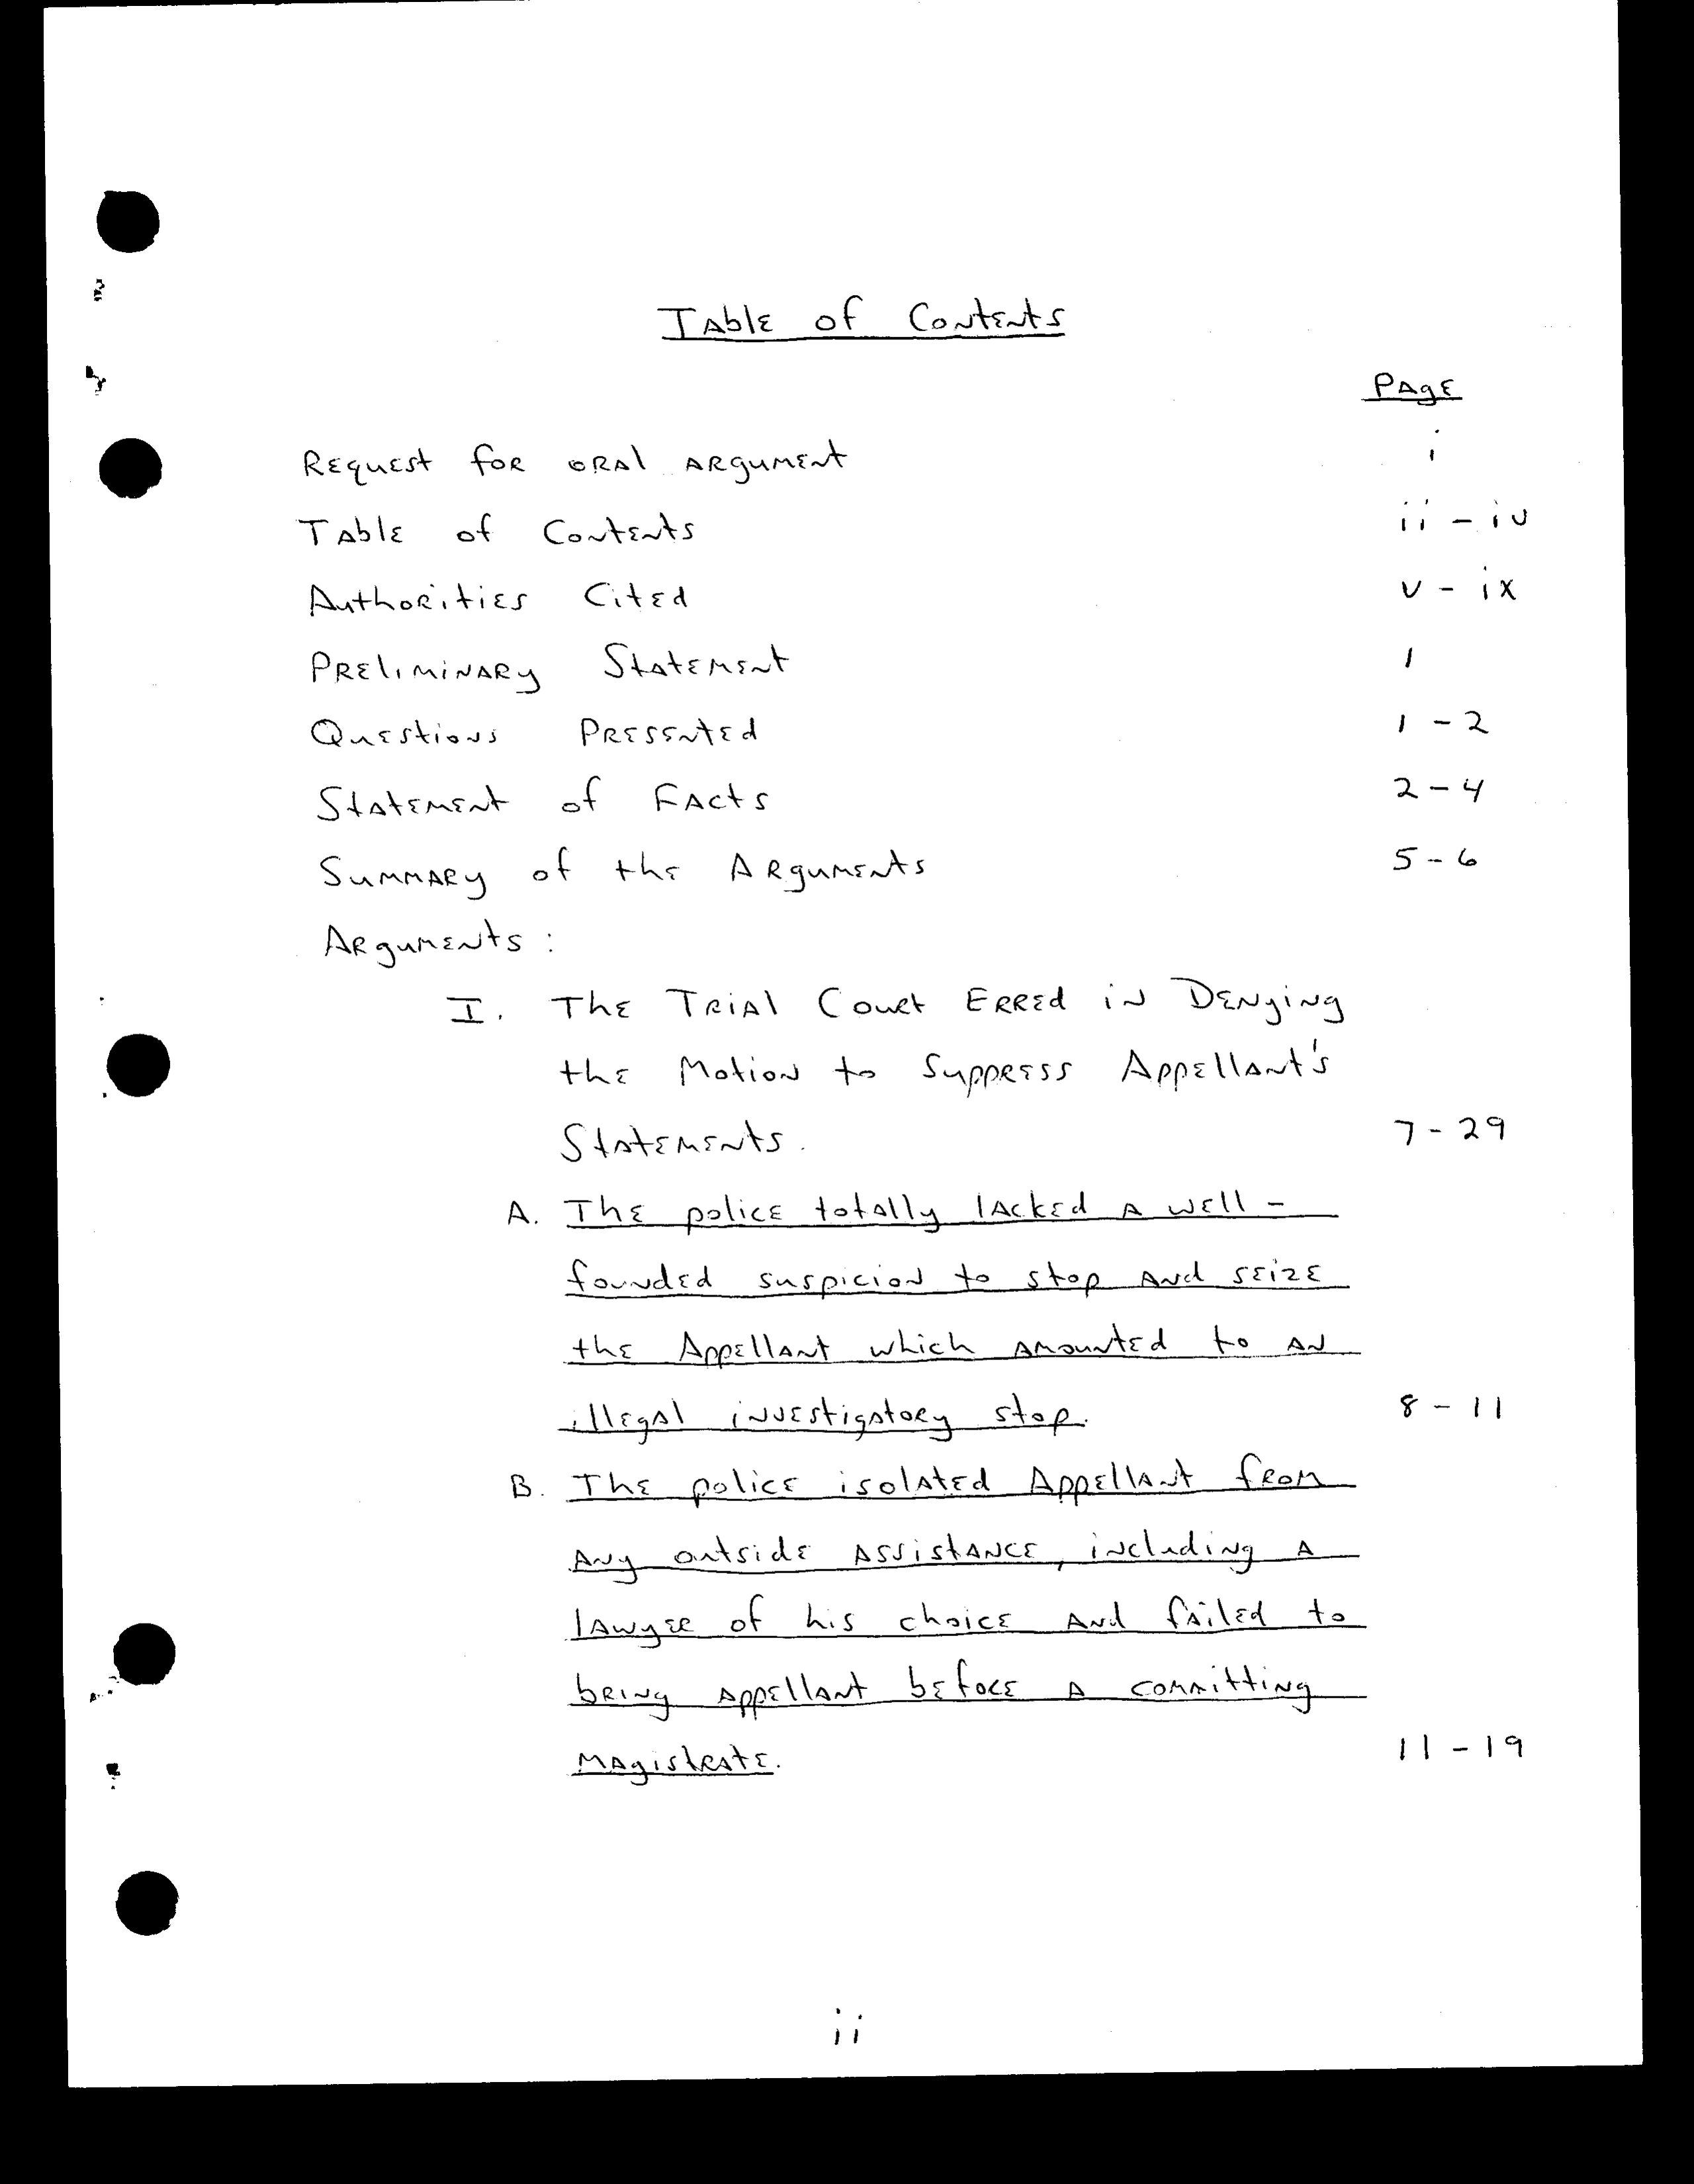 Table of Contents
Page
Request for oral argument i
Table of Contents ii - iv
Authorities Cited v - ix
Preliminary Statement 1
Questions Presented 1 - 2
Statement of Facts 2 - 4
Summary of the Arguments 5 - 6
Arguments :
I. The Trial Court Erred in Denying
the Motion to Suppress Appellant's
Statements. 7 - 29
A. The police totally lacked a well -
founded suspicion to stop and seize
the Appellant which amounted to an
illegal investigatory stop. 8 - 11
B. The police isolated Appellant from
any outside assistance, including a
lawyer of his choice and failed to
bring appellant before a committing
Magistrate. 11 - 19
ii